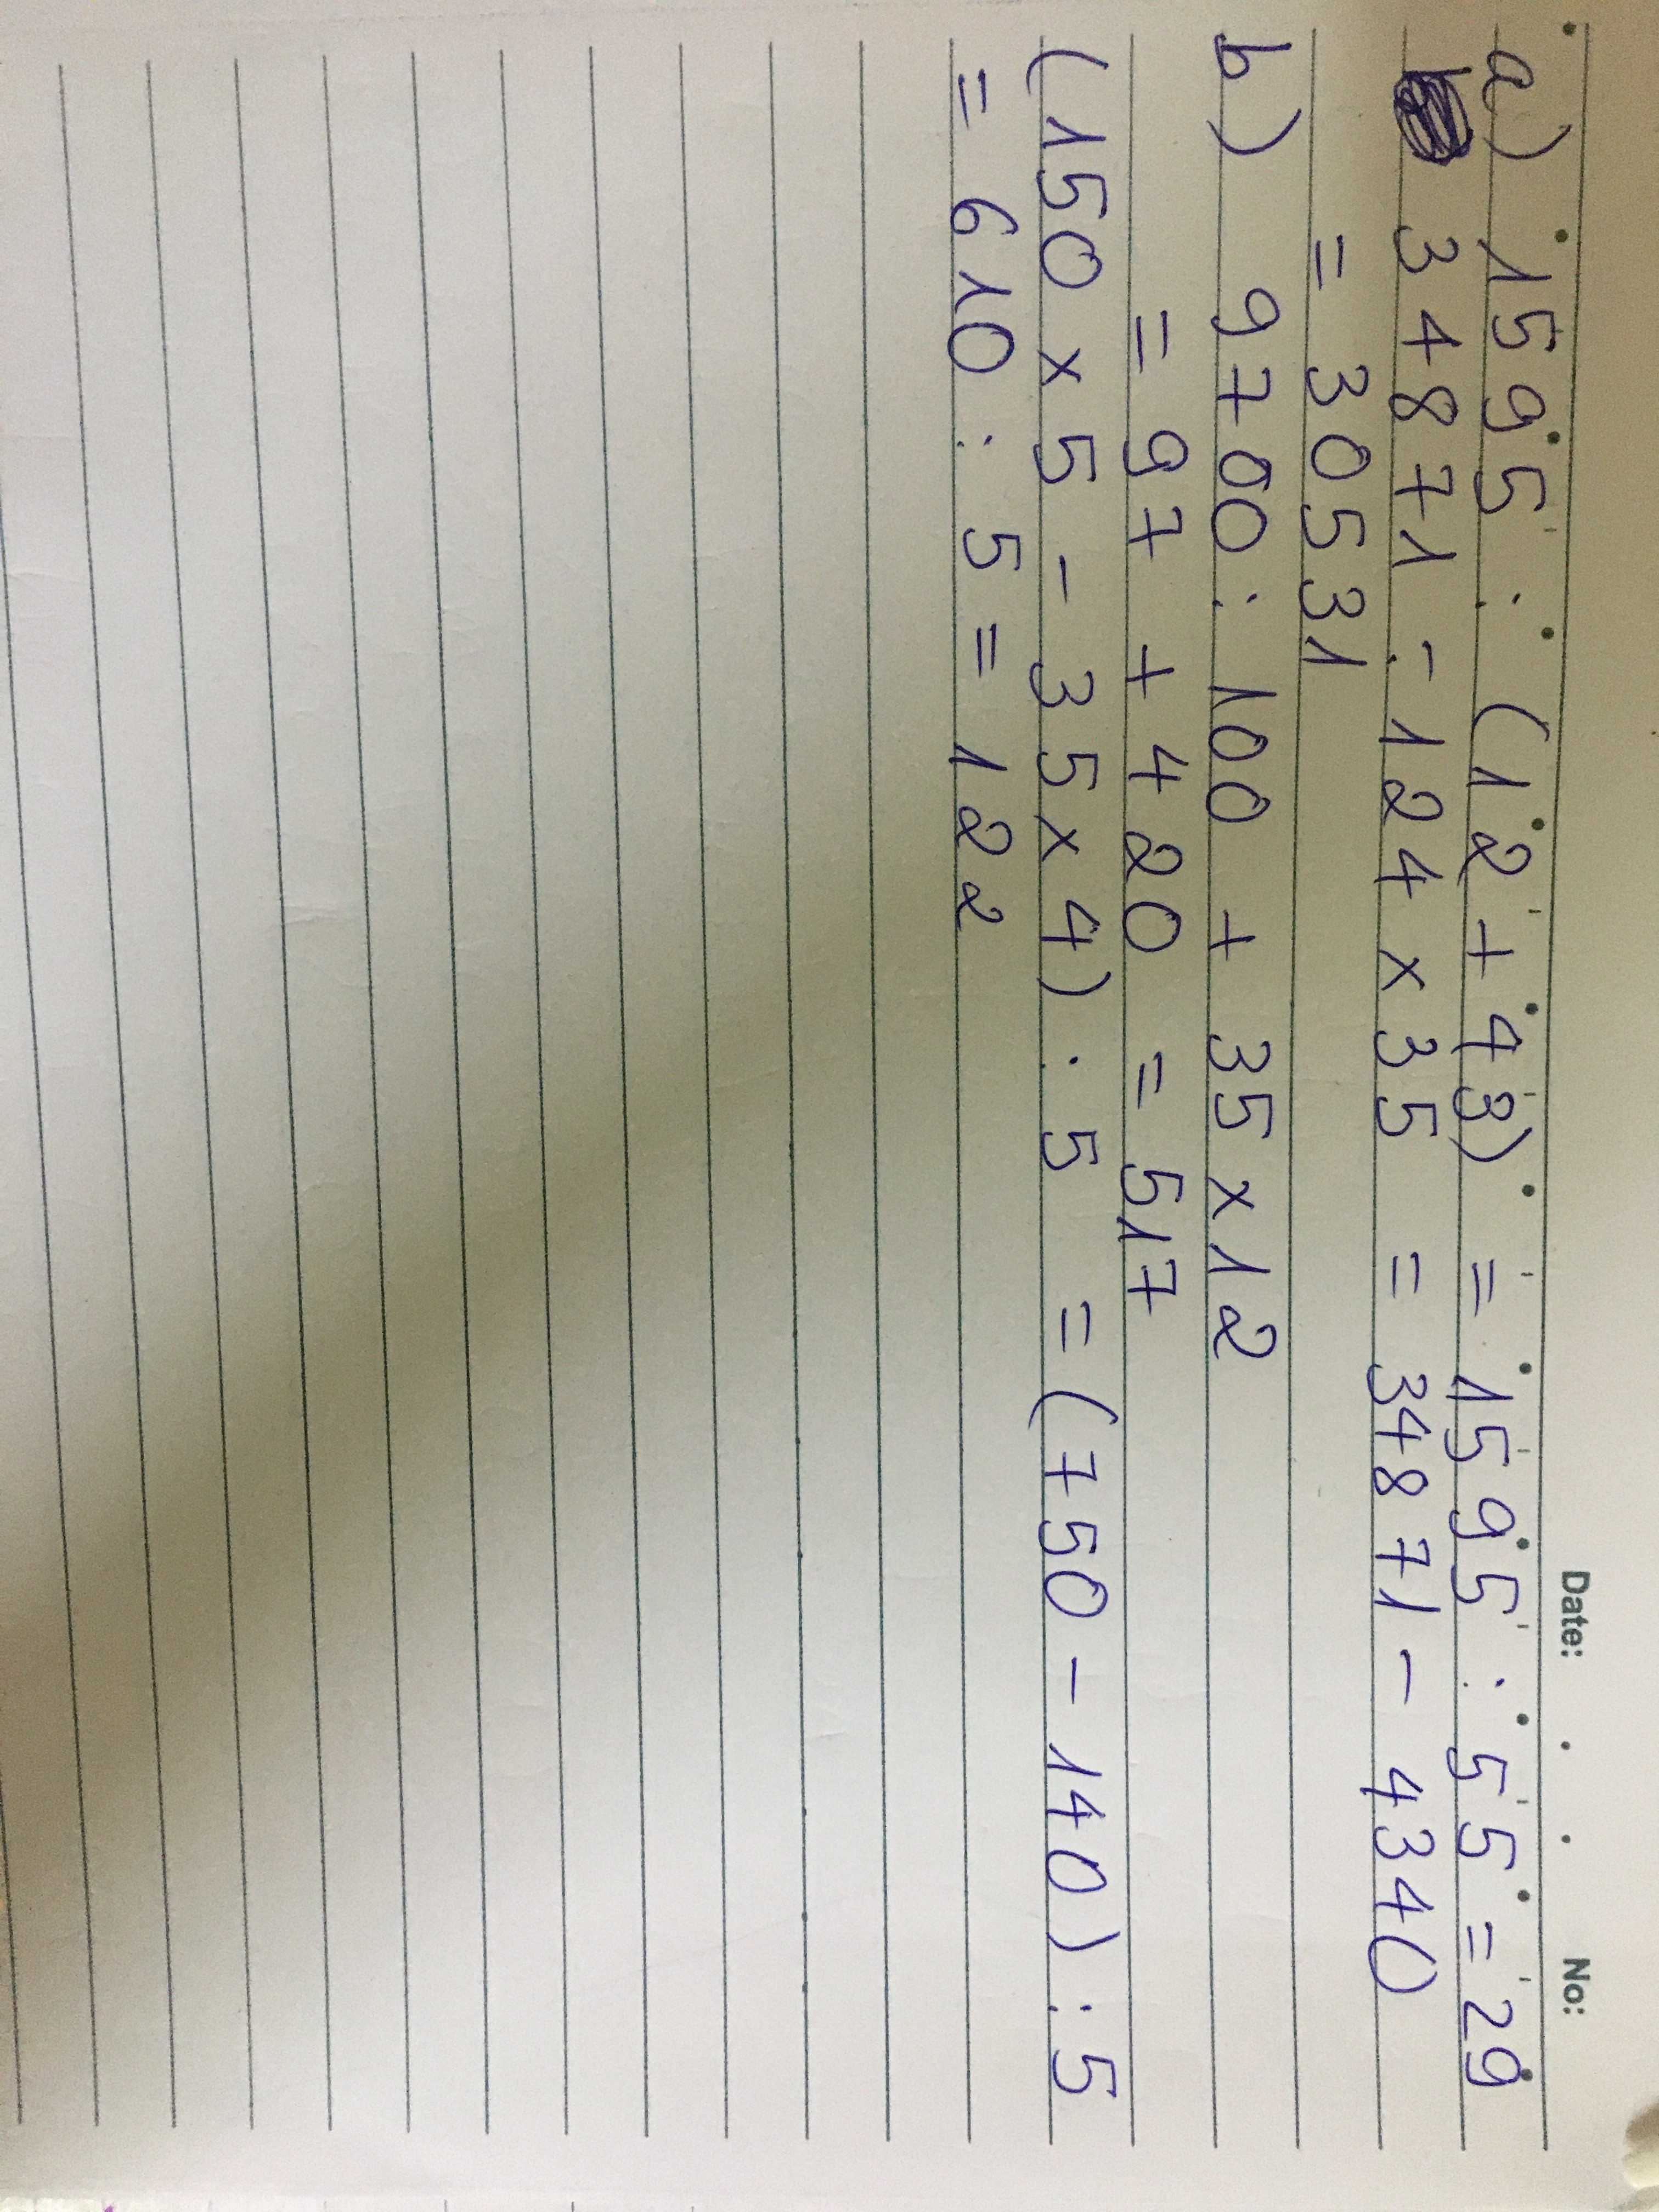 Date: . . No:
a) 1595 : (12 + 43) = 1595 : 55 = 29
34871 - 124 x 35 = 34871 - 4340
= 30531
b) 9700 : 100 + 35 x 12
= 97 + 420 = 517
(150 x 5 - 35 x 4) : 5 = (750 - 140) : 5
= 610 : 5 = 122